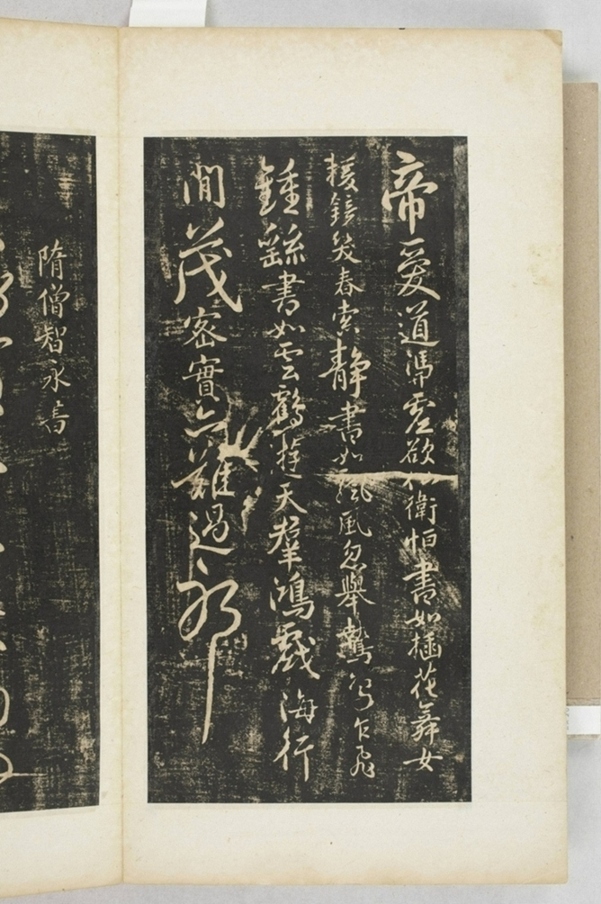 帝愛道馮虛欲仙衛恒書如插花舞女
援鏡笑春索靜書如飄風忽舉鷙鳥乍飛
鍾繇書如雲鶴遊天羣鴻戲海行
間茂密實亦難過耶
隋僧智永書